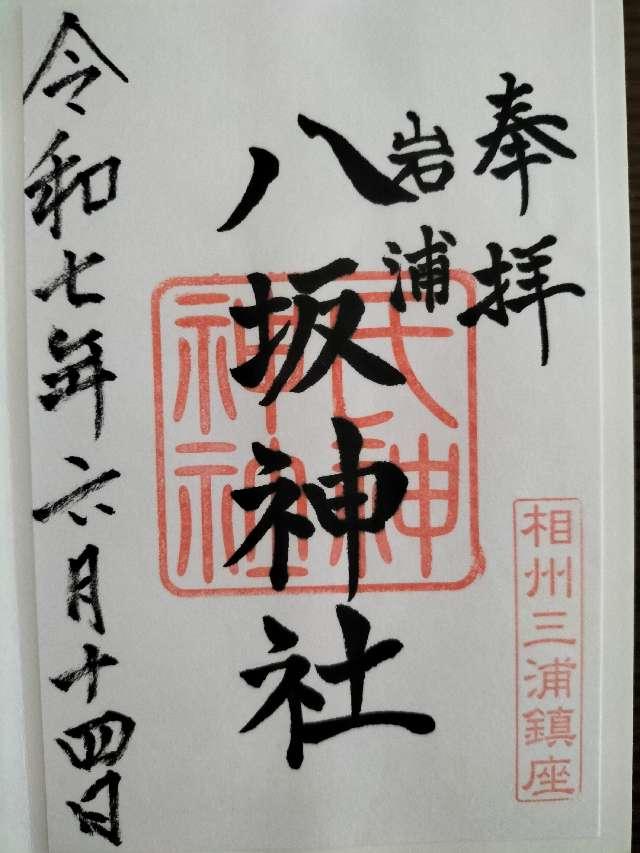 奉拝
岩浦
八坂神社
氏神
神社
相州三浦鎮座
令和七年六月十四日